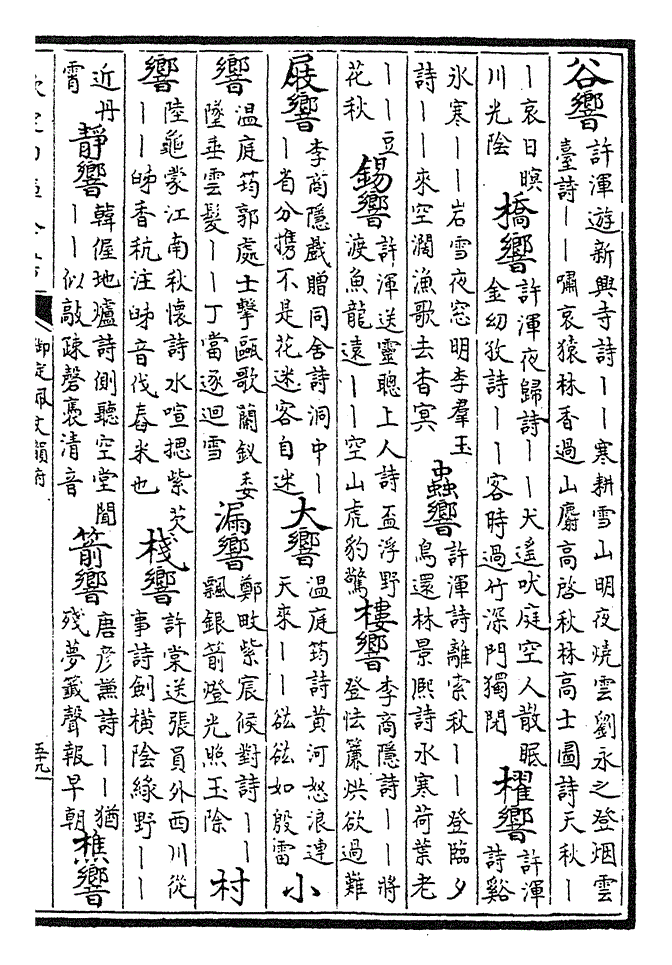 谷響
許渾遊新興寺詩丨丨寒耕雪山明夜燒雲劉永之登烟雲
臺詩丨丨嘯哀猿林香過山麝高啓秋林高士圖詩天秋丨
丨哀日暝
川光陰
橋響
許渾夜歸詩丨丨犬遙吠庭空人散眠
金幼孜詩丨丨客時過竹深門獨閉
櫂響
許渾
詩谿
氷寒丨丨岩雪夜窓明李羣玉
詩丨丨來空濶漁歌去杳冥
蟲響
許渾詩離索秋丨丨登臨夕
鳥還林景熙詩水寒荷葉老
丨丨豆
花秋
錫響
許渾送靈聰上人詩盃浮野
渡魚龍遠丨丨空山虎豹驚
樓響
李商隱詩丨丨將
登怯簾烘欲過難
屐響
李商隱戲贈同舍詩洞中丨
丨省分携不是花迷客自迷
大響
溫庭筠詩黃河怒浪連
天來丨丨谹谹如殷雷
小
響
溫庭筠郭處士擊甌歌蘭釵委
墜垂雲髮丨丨丁當逐迴雪
漏響
鄭畋紫宸候對詩丨丨
飄銀箭燈光照玉除
村
響
陸龜蒙江南秋懷詩水喧揌紫芡
丨丨香秔注音伐舂米也
棧響
許棠送張員外西川從
事詩劍橫陰綠野丨丨
近丹
霄
靜響
韓偓地爐詩側聽空堂聞
丨丨似敲疎磬褭清音
箭響
唐彦謙詩丨丨猶
殘夢籤聲報早朝
樵響
欽定四庫全書
御定佩文韻府